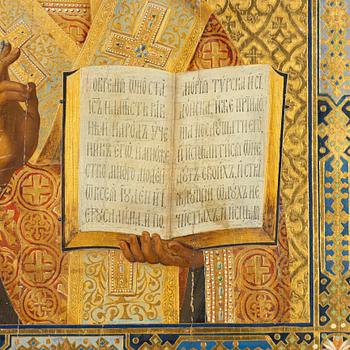 ОВРЕМѦ ѠНО СТА
ІИСЪ НА МѢСТѢ РАВ
НѢ И НАРОДЪ УЧЕ
НИКЪ ЕГѠ, И МНОЖЕ
СТВО МНОГО ЛЮДЕЙ
Ѿ ВСЕѦ ІУДЕИ И
ІЕРУСАЛИМА, И ПО
МОРІѦ ТѴРСКА И СІ
ДОНСКА, ИЖЕ ПРІИДО
ША ПОСЛУШАТИ ЕГѠ,
И ИСЦѢЛИТИСѦ Ѿ НЕ
ДУГЪ СВОИХЪ, И СТРА
ЖДУЩІИ Ѿ ДУХЪ НЕ
ЧИСТЫХЪ, И ИСЦѢЛѦ